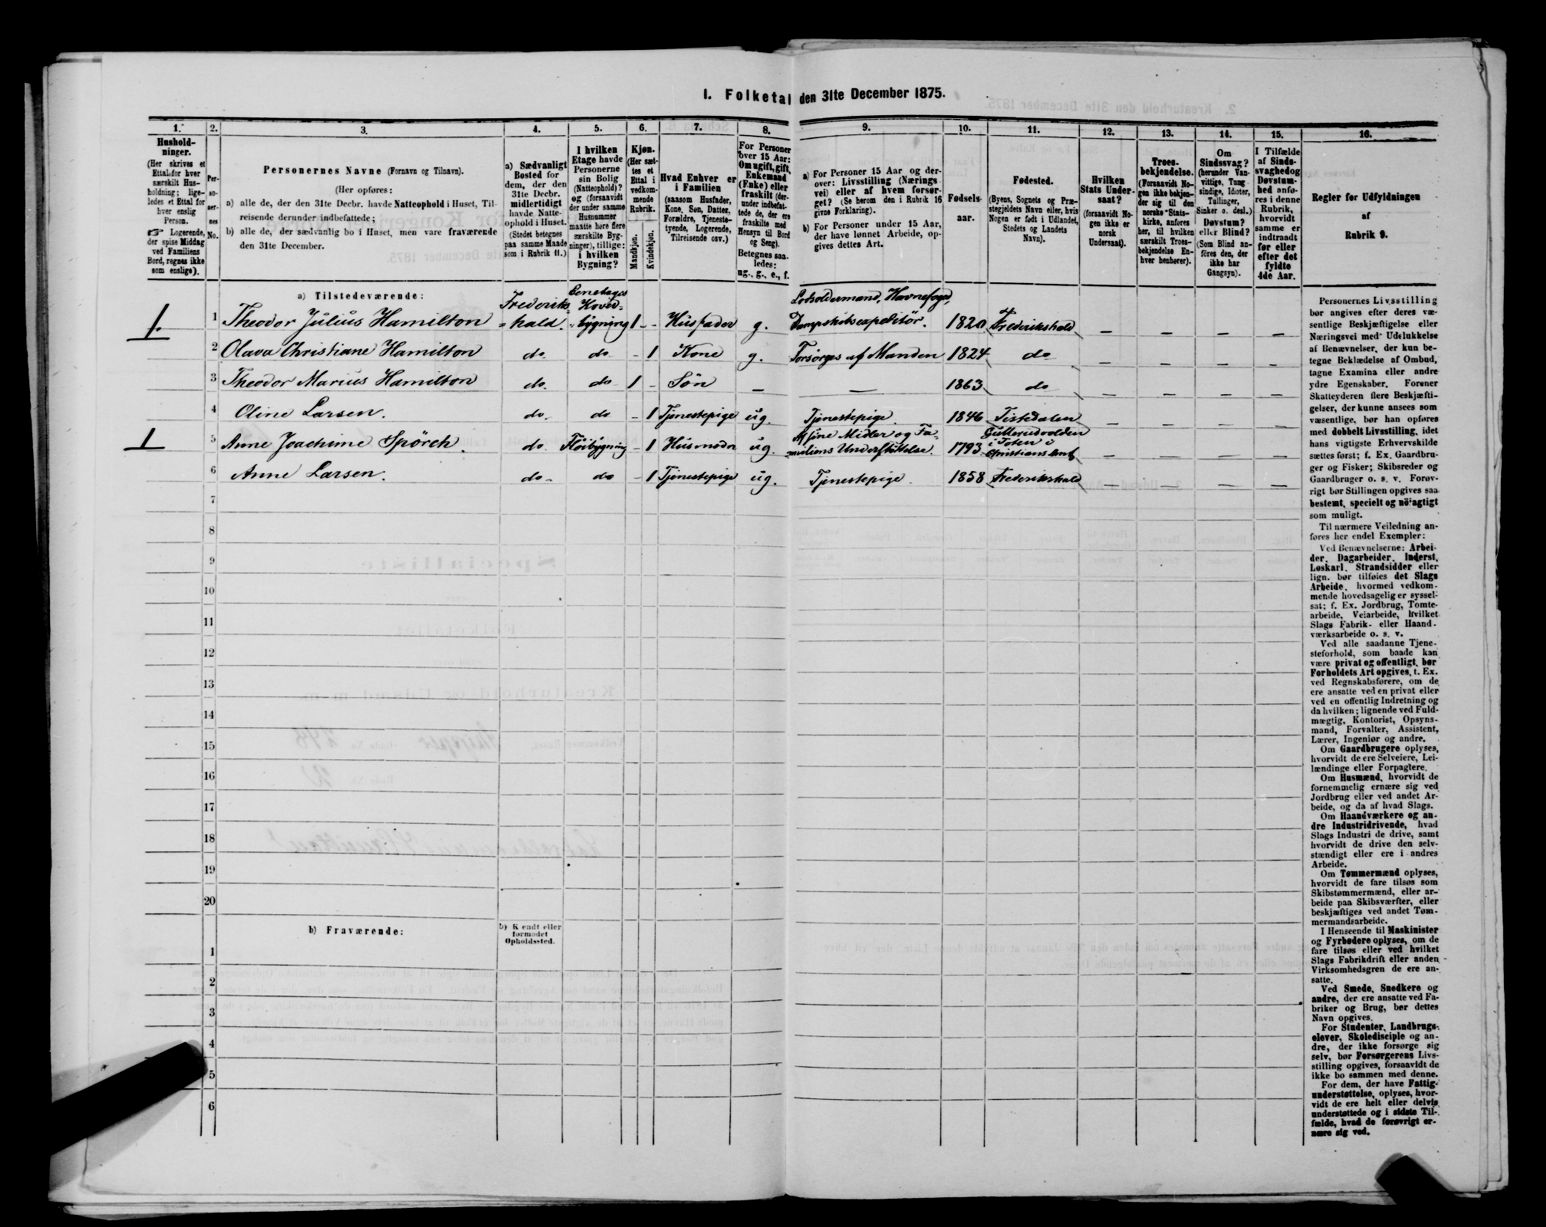 1. Folketal den 31te December 1875.
1.
2.
3.
4.
5.
6.
7.
8.
9.
10.
11.
12.
13.
14.
15.
16.
Hushold-
ninger.
(Her skrives et
Ettal for hver
særskilt Hus-
holdning; lige-
ledes et Ettal for
hver enslig
Person.
☞ Logerende,
der spise Middag
ved Familiens
Bord, regnes ikke
som enslige).
Per-
so-
ner-
nes
No.
Personernes Navne (Fornavn og Tilnavn).
(Her opføres:
a) alle de, der den 31te Decbr. havde Natteophold i Huset, Til-
reisende derunder indbefattede;
b) alle de, der sædvanlig bo i Huset, men vare fraværende
den 31te December.
a) Sædvanligt
Bosted for
dem, der den
31te Decbr.
midlertidigt
havde Natte-
ophold i Huset.
(Stedet betegnes
paa samme Maade
som i Rubrik 11.)
I hvilken
Etage havde
Personerne
sin Bolig
(Natteophold)?
og (forsaavidt
der under samme
Husnummer
maatte høre flere
særskilte Byg-
ninger), tillige:
i hvilken
Bygning?
Kjøn.
(Her sæt-
tes et
Ettal i
vedkom-
mende
Rubrik.
Mandkjøn.
Kvindekjøn.
Hvad Enhver er
i Familien
(saasom Husfader,
Kone, Søn, Datter,
Forældre, Tjeneste-
tyende, Logerende,
Tilreisende osv.)
For Personer
over 15 Aar:
Om ugift, gift,
Enkemand
(Enke) eller
fraskilt (der-
under indbefat-
tede de, der ere
fraskilte med
Hensyn til Bord
og Seng).
Betegnes saa-
ledes:
ug., g., e., f.
a) For Personer 15 Aar og der-
over: Livsstilling (Nærings
vei) eller af hvem forsør-
get? (Se herom den i Rubrik 16
givne Forklaring).
b) For Personer under 15 Aar,
der have lønnet Arbeide, op-
gives dettes Art.
Fødsels-
aar.
Fødested.
(Byens, Sognets og Præ-
stegjeldets Navn eller, hvis
Nogen er født i Udlandet,
Stedets og Landets
Navn).
Hvilken
Stats Under-
saat?
(forsaavidt No-
gen ikke er
norsk
Undersaat).
Troes-
bekjendelse.
(Forsaavidt No-
gen ikke bekjen-
der sig til den
norske Stats-
kirke, anføres
her, til hvilken
særskilt Troes-
bekjendelse En-
hver henhører).
Om
Sindssvag?
(herunder Van-
vittige, Tung-
sindige, Idioter,
Tullinger,
Sinker o. desl.)
Døvstum?
eller Blind?
(Som Blind an-
føres den, der
ikke har
Gangsyn).
I Tilfælde
af Sinds-
svaghed og
Døvstum-
hed anfø-
res i denne
Rubrik,
hvorvidt
samme er
indtraadt
før eller
efter det
fyldte
4de Aar.
Regler for Udfyldningen
af
Rubrik 9.
a) Tilstedeværende:
1 1 Theodor Julius Hamilton Frederiks-hald. Eenetages Hoved-bygning 1 - Husfader g. Lodsoldermand, Havnefoged, Dampskibsexpeditör. 1820 Frederikshald — — — —
2 Olava Christiane Hamilton do. do. - 1 Kone g. Forsörges af Manden 1824 do — — — —
3 Theodor Marius Hamilton do. do 1 - Sön — — 1863 do — — — —
4 Oline Larsen. do. do - 1 Tjenestepige ug. Tjenestepige 1846 Tistedalen — — — —
1 5 Anne Joachime Spörch do. Flöibygning - 1 Huusmoder ug. Af sine Midler og Familiens Understöttelse. 1793 i Toten i Christians Amt — — — —
6 Anne Larsen. do. do - 1 Tjenestepige ug. Tjenestepige. 1858 Frederikshald — — — —
7
8
9
10
11
12
13
14
15
16
17
18
19
20
b) Fraværende:
b) Kjendt eller
formodet
Opholdssted.
1
2
3
4
5
6
Personernes Livsstilling
bør angives efter deres væ-
sentlige Beskjæftigelse eller
Næringsvei med Udelukkelse
af Benævnelser, der kun be-
tegne Beklædelse af Ombud,
tagne Examina eller andre
ydre Egenskaber. Forener
Skatteyderen flere Beskjæfti-
gelser, der kunne ansees som
væsentlige, bør han opføres
med dobbelt Livsstilling, idet
hans vigtigste Erhvervskilde
sættes først; f. Ex. Gaardbru-
ger og Fisker; Skibsreder og
Gaardbruger o. s. v. Forøv-
rigt bør Stillingen opgives saa
bestemt, specielt og nøiagtigt
som muligt.
Til nærmere Veiledning an-
føres her endel Exempler:
Ved Benævnelserne: Arbei-
der, Dagarbeider, Inderst,
Løskarl, Strandsidder eller
lign. bør tilføies det Slags
Arbeide, hvormed vedkom-
mende hovedsagelig er syssel-
sat; f. Ex. Jordbrug, Tomte-
arbeide, Veiarbeide, hvilket
Slags Fabrik- eller Haand-
værksarbeide o. s. v.
Ved alle saadanne Tjene-
steforhold, som baade kan
være privat og offentligt, bør
Forholdets Art opgives, t. Ex.
ved Regnskabsførere, om de
ere ansatte ved en privat eller
ved en offentlig Indretning og
da hvilken; lignende ved Fuld-
mægtig, Kontorist, Opsyns-
mand, Forvalter, Assistent,
Lærer, Ingeniør og andre.
Om Gaardbrugere oplyses,
hvorvidt de ere Selveiere, Lei-
lændinge eller Forpagtere.
Om Husmænd, hvorvidt de
fornemmelig ernære sig ved
Jordbrug eller ved andet Ar-
beide, og da af hvad Slags.
Om Haandværkere og an-
dre Industridrivende, hvad
Slags Industri de drive, samt
hvorvidt de drive den selv-
stændigt eller ere i andres
Arbeide.
Om Tømmermænd oplyses,
hvorvidt de fare tilsøs som
Skibstømmermænd, eller ar-
beide paa Skibsværfter, eller
beskjæftiges ved andet Tøm-
mermandsarbeide.
I Henseende til Maskinister
og Fyrbødere oplyses, om de
fare tilsøs eller ved hvilket
Slags Fabrikdrift eller anden
Virksomhedsgren de ere an-
satte.
Ved Smede, Snedkere og
andre, der ere ansatte ved Fa-
briker og Brug, bør dettes
Navn opgives.
For Studenter, Landbrugs-
elever, Skoledisciple og an-
dre, der ikke forsørge sig
selv, bør Forsørgerens Livs-
stilling opgives, forsaavidt de
ikke bo sammen med denne.
For dem, der have Fattig-
understøttelse, oplyses, hvor-
vidt de ere helt eller delvis
understøttede og i sidste Til-
fælde, hvad de forøvrigt er-
nære sig ved.